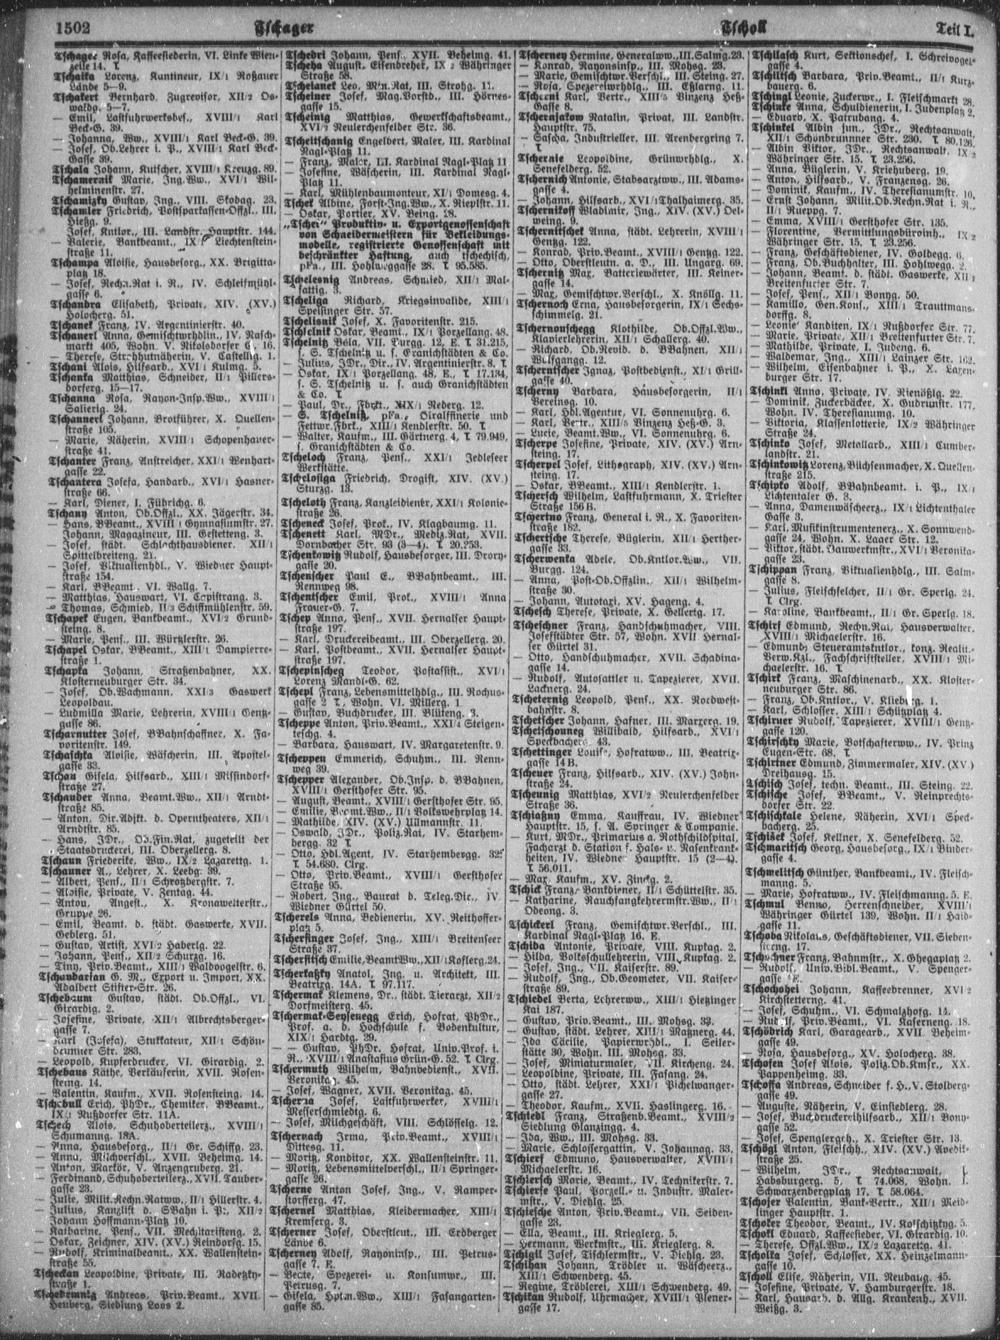 1502
Tschager
Tscholl
Teil I.
Tschager Rosa, Kaffeesiederin, VI. Linke Wien-
zeile 14. T
Tschaika Lorenz, Kantineur, IX/1 Roßauer
Lände 5—9.
Tschakert Bernhard, Zugrevisor, XII/2 Os-
waldg. 5—7.
— Emil, Lastfuhrwerksbes., XVIII/1 Karl
Beck-G. 39.
— Johanna, Ww., XVIII/1 Karl Beck-G. 39.
— Josef, Ob.Lehrer i. P., XVIII/1 Karl Beck-
Gasse 39.
Tschala Johann, Kutscher, XVIII/1 Kreuzg. 89.
Tschamernik Marie, Ing.Ww., XVI/1 Wil-
helminenstr. 27.
Tschamler Friedrich, Postsparkassen-Offzl., III.
Josef, Kntlor., III. Landstr. Hauptstr. 144.
— Valerie, Bankbeamt., IX/1 Liechtenstein-
straße 11.
Tschampa Aloisie, Hausbesorg., XX. Brigitta-
platz 18.
— Josef, Rech.Rat i. R., IV. Schleifmühl-
gasse 6.
Tschandra Elisabeth, Private, XIV. (XV.)
Holocherg. 51.
Tschanek Franz, IV. Argentinierstr. 40.
Tschanerl Anna, Gemischtwrhdlrin., IV. Nasch-
markt 405, Wohn. V. Nikolsdorfer G. 16.
— Therese, Strohhutnäherin, V. Castellig. 1.
Tschani Alois, Hilfsarb., XVI/1 Kulmg. 5.
Tschanka Matthias, Schneider, II/1 Pillers-
dorferg. 15—17.
Tschanna Rosa, Rayon-Insp.Ww., XVIII/1
Salierig. 24.
Tschannerl Johann, Brotführer, X. Quellen-
straße 105.
— Marie, Näherin, XVIII/1 Schopenhauer-
straße 41.
Tschanter Franz, Anstreicher, XXI/1 Wenhart-
gasse 22.
Tschantera Josefa, Handarb., XVI/1 Hasner-
straße 66.
— Karl, Diener, I. Führichg. 6.
Tschany Anton, Ob.Offzl., XX. Jägerstr. 34.
— Hans, BBeamt., XVIII/1 Gymnasiumstr. 27.
Johann, Magazineur, III. Gestetteng. 3.
— Josef, städt. Schlachthausdiener. XII/1
Spittelbreiteng. 21.
— Josef, Viktualienhdl., V. Wiedner Haupt-
straße 154.
— Karl, BBeamt., VI. Wallg. 7.
— Matthias, Hauswart, VI. Corfistrang. 3.
— Thomas, Schmied, II/3 Schiffmühlenstr. 59.
Tschapek Eugen, Bankbeamt., XVI/2 Grund-
steing. 8.
— Marie, Pens., III. Würtzlerstr. 26.
Tschapel Oskar, BBeamt., XIII/1 Dampierre-
straße 1.
Tschapka Johann, Straßenbahner, XX.
Klosterneuburger Str. 34.
— Josef, Ob.Wachmann, XXI/3 Gaswerk
Leopoldau.
— Ludmilla Marie, Lehrerin, XVIII/1 Gentz-
gasse 86.
Tscharnutter Josef, BBahnschaffner, X. Fa-
voritenstr. 149.
Tschaschka Aloisie, Wäscherin, III. Apostel-
gasse 33.
Tschau Gisela, Hilfsarb., XIII/1 Missindorf-
straße 27.
Tschauder Anna, Beamt.Ww., XII/1 Arndt-
straße 85.
— Anton, Dir.Adjkt. d. Operntheaters, XII/1
Arndtstr. 85.
— Hans, JDr., Ob.Fin.Rat, zugeteilt der
Staatsdruckerei, III. Oberzellerg. 8.
Tschaun Friederike, Ww., IX/2 Lazarettg. 1.
Tschauner A., Lehrer, X. Leebg. 39.
— Albert, Pens., II/1 Schrotzbergstr. 7.
— Aloisie, Private, V. Zentag. 44.
— Anton, Angest., X. Kronaweiterstr.,
Gruppe 26.
— Emil, Beamt. d. städt. Gaswerke, XVII.
Geblerg. 51.
— Gustav, Artist, XVI/2 Haberlg. 22.
— Johann, Pens., XII/2 Schurzg. 16.
— Tiny, Priv.Beamt., XIII/1 Waldvogelstr. 6.
Tschawdarian G. M., Export u. Import, XX.
Adalbert Stifter-Str. 26.
Tschebaum Gustav, städt. Ob.Offzl., VI.
Girardig. 2.
— Josefine, Private, XII/1 Albrechtsberger-
gasse 7.
— Karl (Josefa), Stukkateur, XII/1 Schön-
brunner Str. 283.
— Leopold, Kupferdrucker, VI. Girardig. 2.
Tschebaus Käthe, Verkäuferin, XVII. Rosen-
steing. 14.
— Valentin, Kaufm., XVII. Rosensteing. 14.
Tschebull Erich, PhDr., Chemiker, BBeamt.,
IX/1 Nußdorfer Str. 11A.
Tschech Alois, Schuhoberteilerz., XVIII/1
Schumanng. 18A.
— Anna, Hausbesorg., II/1 Gr. Schiffg. 23.
— Anna, Milchverschl., XVII. Beheimg. 14.
— Anton, Markör, V. Anzengruberg. 21.
— Ferdinand, Schuhoberteilerz., XVI. Tauber-
gasse 23.
— Julie, Milit.Rechn.Ratww., II/1 Hillerstr. 4.
— Julius, Kanzlist d. SBahn i. P., XII/2
Johann Hoffmann-Platz 10.
— Katharine, Pens., VII. Mechitaristeng. 2.
— Oskar, Zeichner, XIV. (XV.) Reindorfg. 15.
— Rudolf, Kriminalbeamt. XX. Wallenstein-
straße 55.
Tscheckan Leopoldine, Private, III. Radetzky-
straße 1.
Tschedemnig Andreas, Priv.Beamt., XVII.
Heuberg, Siedlung Loos 2.
Tschedri Johann, Pens., XVII. Beheimg. 41.
Tscheha August, Eisendreher, IX/2 Währinger
Straße 58.
Tscheianet Leo, Min.Rat, III. Strohg. 11.
Tscheiner Josef, Mag.Vorstd., III. Hörnes-
gasse 15.
Tscheinig Matthias, Gewerkschaftsbeamt.,
XVI/2 Neulerchenfelder Str. 36.
Tscheitschanig Engelbert, Maler, III. Kardinal
Nagl-Platz 11.
— Franz, Maler, III. Kardinal Nagl-Platz 11
— Josefine, Wäscherin, III. Kardinal Nagl-
Platz 11.
— Karl, Mühlenbaumonteur, XI/1 Domesg. 4.
Tschek Albine, Forst-Ing.Ww., X. Rieplstr. 11.
— Oskar, Portier, XV. Being. 28.
„Tsche“ Produktiv- u. Exportgenossenschaft
von Schneidermeistern für Bekleidungs-
modelle, registrierte Genossenschaft mit
beschränkter Haftung, auch tschechisch,
pka., III. Hohlweggasse 28. T 95.585.
Tschelesnig Andreas, Schmied, XII/1 Mal-
fattig. 3.
Tscheliga Richard, Kriegsinvalide, XIII/1
Speisinger Str. 57.
Tschelisnik Josef, X. Favoritenstr. 215.
Tschelnik Oskar, Beamt., IX/1 Porzellang. 48.
Tschelnitz Béla, VII. Burgg. 12, E. T 31.215,
s. S. Tschelnitz u. s. Granichstädten & Co.
— Julius, JDr., Dir., IV. Argentinierstr. 8. T
— Oskar, IX/1 Porzellang. 48, E., T 17.194,
s. S. Tschelnitz u. s. auch Granichstädten
& Co. T
— Paul, Dr., Fbrkt., XIX/1 Nederg. 12.
— S. Tschelnitz, pka., Ölraffinerie und
Fettwr.Fbrk., XIII/1 Kendlerstr. 50. T
— Walter, Kaufm., III. Gärtnerg. 4, T 79.949,
s. Granichstädten & Co.
Tscheloch Franz, Pens., XXI/1 Jedleseer
Werkstätte.
Tschelosiga Friedrich, Drogist, XIV. (XV.)
Sturzg. 13.
Tscheloth Franz, Kanzleidientr., XXI/1 Kolonie-
straße 26.
Tscheneck Josef, Prok., IV. Klagbaumg. 11.
Tschenett Karl, MDr., Mediz.Rat, XVII.
Dornbacher Str. 93 (3—4). T 20.253.
Tschenkowitz Rudolf, Hausbesorger, III. Drory-
gasse 20.
Tschenscher Paul E., BBahnbeamt., III.
Rennweg 98.
Tschentscher Emil, Prof., XVIII/1 Anna
Frauer-G. 7.
Tschep Anna, Pens., XVII. Hernalser Haupt-
straße 197.
— Karl, Druckereibeamt., III. Oberzellerg. 20.
— Karl, Postbeamt., XVII. Hernalser Haupt-
straße 197.
Tschepinscheg Teodor, Postassist., XVI/1
Lorenz Mandl-G. 62.
Tschepl Franz, Lebensmittelhdlg., III. Rochus-
gasse 2 T, Wohn. VI. Millerg. 1
— Gustav, Buchdrucker, III. Blüteng. 3.
Tscheppe Anton, Priv.Beamt., XXI/4 Steigen-
teschg. 4.
— Barbara, Hauswart, IV. Margaretenstr. 9.
Tscheppen Emmerich, Schuhm., III. Renn-
weg 39.
Tschepper Alexander, Ob.Insp. d. BBahnen,
XVIII/1 Gersthofer Str. 95.
— August, Beamt., XVIII/1 Gersthofer Str. 95.
— Emilie, Beamt.Ww., II/1 Volkswehrplatz 14.
— Mathilde, XIV. (XV.) Ullmannstr. 11.
— Oswald, JDr., Poliz.Rat, IV. Starhem-
bergg. 32 T
— Otto, Hdl.Agent, IV. Starhembergg. 32
T 54.680. Clrg.
— Otto, Priv.Beamt., XVIII/1 Gersthofer
Straße 95.
— Robert, Ing., Baurat d. Teleg.Dir., IV
Wiedner Gürtel 50.
Tscherels Anna, Bedienerin, XV. Reithoffer-
platz 5.
Tscherfinger Josef, Ing., XIII/1 Breitenseer
Straße 37.
Tscherfitsch Emilie, BeamtWw., XII/1 Koflerg. 24.
Tscherkaßky Anatol, Ing. u. Architekt, III.
Beatrixg. 14A. T 97.117.
Tschermak Klemens, Dr., städt. Tierarzt, XII/2
Dorfmeisterg. 45.
Tschermak-Seysenegg Erich, Hofrat, PhDr.,
Prof. a. d. Hochschule f. Bodenkultur,
XIX/1 Hardtg. 29.
— Gustav, PhDr., Hofrat, Univ.Prof. i.
R., XVIII/1 Anastasius Grün-G. 52. T Clrg.
Tschermuth Wilhelm, Bahnbedienst., XVII.
Veronikag. 45.
— Josef, Wagner, XVII. Veronikag. 45.
Tscherna Josef, Lastfuhrwerker, XVIII/1
Messerschmiedtg. 6.
— Josef, Milchgeschäft, VIII. Schlösselg. 12.
Tschernach Irma, Priv.Beamt., XVIII/1
Dittesg. 11.
— Moritz, Konditor, XX. Wallensteinstr. 11.
— Moritz, Lebensmittelverschl., II/1 Springer-
gasse 26.
Tscherne Anton Josef, Ing., V. Ramper-
storfferg. 47.
Tschernel Matthias, Kleidermacher, XIII/1
Kremserg. 3.
Tscherner Josef, Oberstleut., III. Erdberger
Lände 6.
Tscherney Adolf, Rayoninsp., III. Petrus-
gasse 7. E.
— Beate, Spezerei- u. Konsumwr., III.
Petrusg. 7.
— Gisela, Hptm.Ww., XIII/1 Fasangarten-
gasse 85.
Tscherney Hermine, Generalww., III. Salmg. 23.
— Konrad, Rayonsinsp., III. Mohsg. 23.
— Marie, Gemischtwr.Verschl., III. Steing. 27.
— Rosa, Spezereiwrhdlg., III. Eßlarng. 11.
Tscherni Karl, Vertr., XIII/5 Vinzenz Heß-
Gasse 8.
Tschernjakow Natalin, Privat, III. Landstr.
Hauptstr. 75.
— Sascha, Industrieller, III. Arenbergring 7.
T
Tschernie Leopoldine, Grünwrhdlg., X.
Senefelderg. 52.
Tschernich Antonie, Stabsarztww., III. Adams-
gasse 4.
— Johann, Hilfsarb., XVI/1 Thalhaimerg. 35.
Tschernikoff Wladimir, Ing., XIV. (XV.) Oel-
weing. 9.
Tschernitschek Anna, städt. Lehrerin, XVIII/1
Gentzg. 122.
— Konrad, Priv.Beamt., XVIII/1 Gentzg. 122.
— Otto, Oberstleutn. a. D., III. Ungarg. 69.
Tschernitz Max, Batteriewärter, III. Keiner-
gasse 14.
— Max, Gemischtwr.Verschl., X. Knöllg. 11.
Tschernoch Erna, Hausbesorgerin, IX/1 Sechs-
schimmelg. 21.
Tschernoschegg Klothilde, Ob.Offzl.Ww.,
Klavierlehrerin, XII/1 Schallerg. 40.
— Richard, Ob.Revid. d. BBahnen, XII/1
Wolfgangg. 12.
Tscherntscher Ignaz, Postbedienst., XI/1 Grill-
gasse 40.
Tscherny Barbara, Hausbesorgerin, II/1
Vereinsg. 10.
— Karl, Hdl.Agentur, VI. Sonnenuhrg. 6.
— Karl, Vertr., XIII/5 Vinzenz Heß-G. 3.
— Lucie, Beamt.Ww., VI. Sonnenuhrg. 6.
Tscherpe Josefine, Private, XIV. (XV.) Arn-
steing. 17.
Tscherpel Josef, Lithograph, XIV. (XV.) Arn-
steing. 17.
— Oskar, BBeamt., XIII/1 Kendlerstr. 1.
Tschersch Wilhelm, Lastfuhrmann, X. Triester
Straße 156B.
Tschertno Franz, General i. R., X. Favoriten-
straße 182.
Tschertsche Therese, Büglerin, XII/1 Herther-
gasse 33.
Tscherwenka Adele, Ob.Kntlor.Ww., VII.
Burgg. 124.
— Anna, Post-Ob.Offzlin., XII/1 Wilhelm-
straße 30.
— Johann, Autotaxi, XV. Hageng. 4.
Tschesch Therese, Private, X. Gellertg. 17.
Tscheschner Franz, Handschuhmacher, VIII.
Josefstädter Str. 57, Wohn. XVII. Hernal-
ser Gürtel 31.
— Otto, Handschuhmacher, XVII. Schadina-
gasse 14.
— Rudolf, Autosattler u. Tapezierer, XVII.
Lacknerg. 24.
Tscheternig Leopold, Pens., XX. Nordwest-
bahnstr. 8.
Tschetscher Johann, Hafner, III. Marxerg. 19.
Tschetschouneg Willibald, Hilfsarb., XVI/1
Speckbacherg. 43.
Tschettinger Louise, Hofratww., III. Beatrix-
gasse 14B.
Tscheuer Franz, Hilfsarb., XIV. (XV.) John-
straße 24.
Tscheunig Matthias, XVI/2 Neulerchenfelder
Straße 36.
Tschiaßny Emma, Kauffrau, IV. Wiedner
Hauptstr. 15, s. A. Springer & Companie.
— Kurt, MDr., Primarius a. Rothschildspital,
Facharzt d. Station f. Hals- u. Nasenkrank-
heiten, IV. Wiedner Hauptstr. 15 (2—4).
T 56.011.
— Max, Kaufm., XV. Zinckg. 2.
Tschick Franz, Bankdiener, II/1 Schüttelstr. 35.
— Katharine, Rauchfangkehrermstr.Ww., II/1
Odeong. 3.
Tschickerl Franz, Gemischtwr.Verschl., III.
Kardinal Nagl-Platz 16. E.
Tschida Antonie, Private, VIII. Kuptag. 2.
— Hilda, Volksschullehrerin, VIII. Kuptag. 2.
— Josef, Ing., VII. Kaiserstr. 89.
— Rudolf, Ing., Ob.Geometer, VII. Kaiser-
straße 89.
Tschiedel Berta, Lehrerww., XIII/1 Hietzinger
Kai 187.
— Gustav, Priv.Beamt., III. Mohsg. 33.
— Gustav, städt. Lehrer, XII/1 Malfattig. 44.
— Ida Cäcilie, Papierwrhdl., I. Seiler-
stätte 30, Wohn. III. Mohsg. 33.
— Josef, Miniaturmaler, VII. Kircheng. 24.
— Leopoldine, Private, III. Fasang. 24.
— Otto, städt. Lehrer, XXI/1 Pichelwanger-
gasse 27.
— Theodor, Kaufm., XVII. Haslingerg. 16.
Tschiedl Franz, Straßenb.Beamt., XVIII/2
Siedlung Glanzingg. 4.
— Ida, Ww., III. Mohsg. 33.
— Marie, Schlossergattin, V. Johannag. 33.
Tschierf Edmund, Hausverwalter, XVIII/1
Michaelerstr. 16.
Tschiersch Marie, Beamt., IV. Technikerstr. 7.
Tschierse Paul, Porzell.- u. Industr. Maler-
mstr., V. Diehlg. 25.
Tschiesche Anton, Priv.Beamt., VII. Seiden-
gasse 23.
— Ella, Beamt., III. Krieglerg. 5.
— Hermann, Werkmstr., III. Krieglerg. 8.
Tschigil Josef, Tischlermstr., V. Diehlg. 23.
Tschihan Johann, Trödler u. Wäscherz.,
XIII/1 Schwendnerg. 45.
— Regine, Trödlerei, XIII/1 Schwendnerg. 49.
Tschikan Rudolf, Uhrmacher, XVIII/1 Plener-
gasse 17.
Tschilasch Kurt, Sektionschef, I. Schreyvogel-
gasse 4.
Tschilitsch Barbara, Priv.Beamt., II/1 Kurz-
bauerg.
Tschingl Leonie, Zuckerwr., I. Fleischmarkt 28.
Tschinke Anna, Schuldienerin, I. Judenplatz 2.
— Eduard, X. Patrubang. 4.
Tschinkel Albin jun., JDr., Rechtsanwalt,
XII/1 Schönbrunner Str. 230. T 80.126.
— Albin Viktor, JDr., Rechtsanwalt, IX/2
Währinger Str. 15. T 23.256.
— Anna, Büglerin, V. Kriehuberg. 19.
— Anton, Hilfsarb., V. Franzensg. 26.
— Dominik, Kaufm., IV. Theresianumstr. 10.
— Ernst Johann, Milit.Ob.Rechn.Rat i. R.,
II/1 Rueppg. 7.
— Emma, XVIII/1 Gersthofer Str. 135.
— Florentine, Vermittlungsbüroinh., IX/2
Währinger Str. 15. T 23.256.
— Franz, Geschäftsdiener, IV. Golbegg. 6.
— Franz, Ob.Buchhalter, III. Hohlwegg. 2.
— Johann, Beamt. d. städt. Gaswerke, XII/1
Breitenfurter Str. 7.
— Josef, Pens., XII/1 Bonyg. 50.
— Kamillo, Gen.Kons., XIII/1 Trauttmans-
dorffg. 8.
— Leonie, Kanditen, IX/1 Nußdorfer Str. 77.
— Marie, Private, XII/1 Breitenfurter Str. 7.
— Mathilde, Private, I. Judeng. 6.
— Waldemar, Ing., XIII/1 Lainzer Str. 162.
— Wilhelm, Eisenbahner i. P., X. Laxen-
burger Str. 17.
Tschinkl Anna, Private, IV. Rienößlg. 22.
— Dominik, Zuckerbäcker, X. Gudrunstr. 177,
Wohn. IV. Theresianumg. 10.
— Viktoria, Klassenlotterie, IX/2 Währinger
Straße 24.
Tschinko Josef, Metallarb., XIII/1 Cumber-
landstr. 21.
Tschinkowitz Lorenz, Büchsenmacher, X. Quellen-
straße 215.
Tschipko Adolf, BBahnbeamt. i. P., IX/1
Lichtentaler G. 3.
— Anna, Damenwäscherz., IX/1 Lichtenthaler
Gasse 3.
— Karl, Musikinstrumentenerz., X. Sonnwend-
gasse 24, Wohn. X. Laaer Str. 12.
— Viktor, städt. Bauwerksmstr., XVI/1 Veronika-
gasse 23.
Tschippan Franz, Viktualienhdlg., III. Salm-
gasse 8.
— Julius, Fleischselcher, II/1 Gr. Sperlg. 24.
T Clrg.
— Karoline, Bankbeamt., II/1 Gr. Sperlg. 18.
Tschirf Edmund, Rechn.Rat, Hausverwalter,
XVIII/1 Michaelerstr. 16.
— Edmund, Steueramtskntlor., konz. Realit.-
Verw.Kzl., Fachschriftsteller, XVIII/1 Mi-
chaelerstr. 16. T
Tschirk Franz, Maschinenarb., XX. Kloster-
neuburger Str. 86.
— Franz, Ob.Kntlor., V. Kliebg. 1.
— Karl, Schlosser, XIII/1 Schlitzplatz 4.
Tschirner Rudolf, Tapezierer, XVIII/1 Gentz-
gasse 120.
Tschirschky Marie, Botschafterww., IV. Prinz
Eugen-Str. 68. T
Tschirtner Edmund, Zimmermaler, XIV. (XV.)
Dreihausg. 15.
Tschisch Josef, techn. Beamt., III. Steing. 22.
Tschische Josef, BBeamt., V. Reinprechts-
dorfer Str. 22.
Tschischkale Helene, Näherin, XVI/1 Speck-
bacherg. 25.
Tschischek Josef, Kellner, X. Senefelderg. 52.
Tschmaritsch Georg, Hausbesorg., IX/1 Binder-
gasse 4.
Tschmelitsch Günther, Bankbeamt., IV. Fleisch-
manng. 5.
— Marie, Hofratww., IV. Fleischmanng. 5. E.
Tschmul Benno, Herrenschneider, XVIII/1
Währinger Gürtel 139, Wohn. II/1 Haid-
gasse 11.
Tschoba Nikolaus, Geschäftsdiener, VII. Sieben-
sterng. 17.
Franz, Bahnmstr., X. Ghegaplatz 2.
— Rudolf, Univ.Bibl.Beamt., V. Spenger-
gasse
Tschochohei Johann, Kaffeebrenner, XVI/2
Kirchstetterng. 41.
— Josef, Schuhm., VI. Schmalzhofg. 14.
— Rudolf, Priv.Beamt., VI. Kaserneng. 18.
Tschödrich Karl, Garagearb., XVII. Beheim-
gasse 49.
— Rosa, Hausbesorg., XV. Holocherg. 38.
Tschofen Josef Alois, Poliz.Ob.Kmsr., XX.
Pappenheimg. 33.
Tschoffa Andreas, Schneider f. H., V. Stolberg-
gasse 49.
— Auguste, Näherin, V. Einsiedlerg. 28.
— Josef, Buchdruckereihilfsarb., XII/1 Bony-
gasse 52.
— Josef, Spenglergeh., X. Triester Str. 13.
Tschögl Anton, Fleischh., XIV. (XV.) Avedik-
straße 25.
— Wilhelm, JDr., Rechtsanwalt, I.
Habsburgerg. 5, T 74.068, Wohn. I.
Schwarzenbergplatz 17, T 58.064.
Tschofer Valentin, Bank-Vertr., XII/1 Meid-
linger Hauptstr. 1.
Tschoker Theodor, Beamt., IV. Kolschitzkyg. 5.
Tscholi Eduard, Kaffeesieder, VI. Girardig. 10.
— Therese, Offzl.Ww., IX/2 Lazarettg. 41.
Tscholka Josef, Schlosser, XX. Heinzelmann-
gasse 10.
Tscholl Elise, Näherin, VII. Neubaug. 45.
— Josefine, Private, V. Hamburgerstr. 18.
— Karl, Hausarb. d. Allg. Krankenh., XVII.
Weißg. 3.